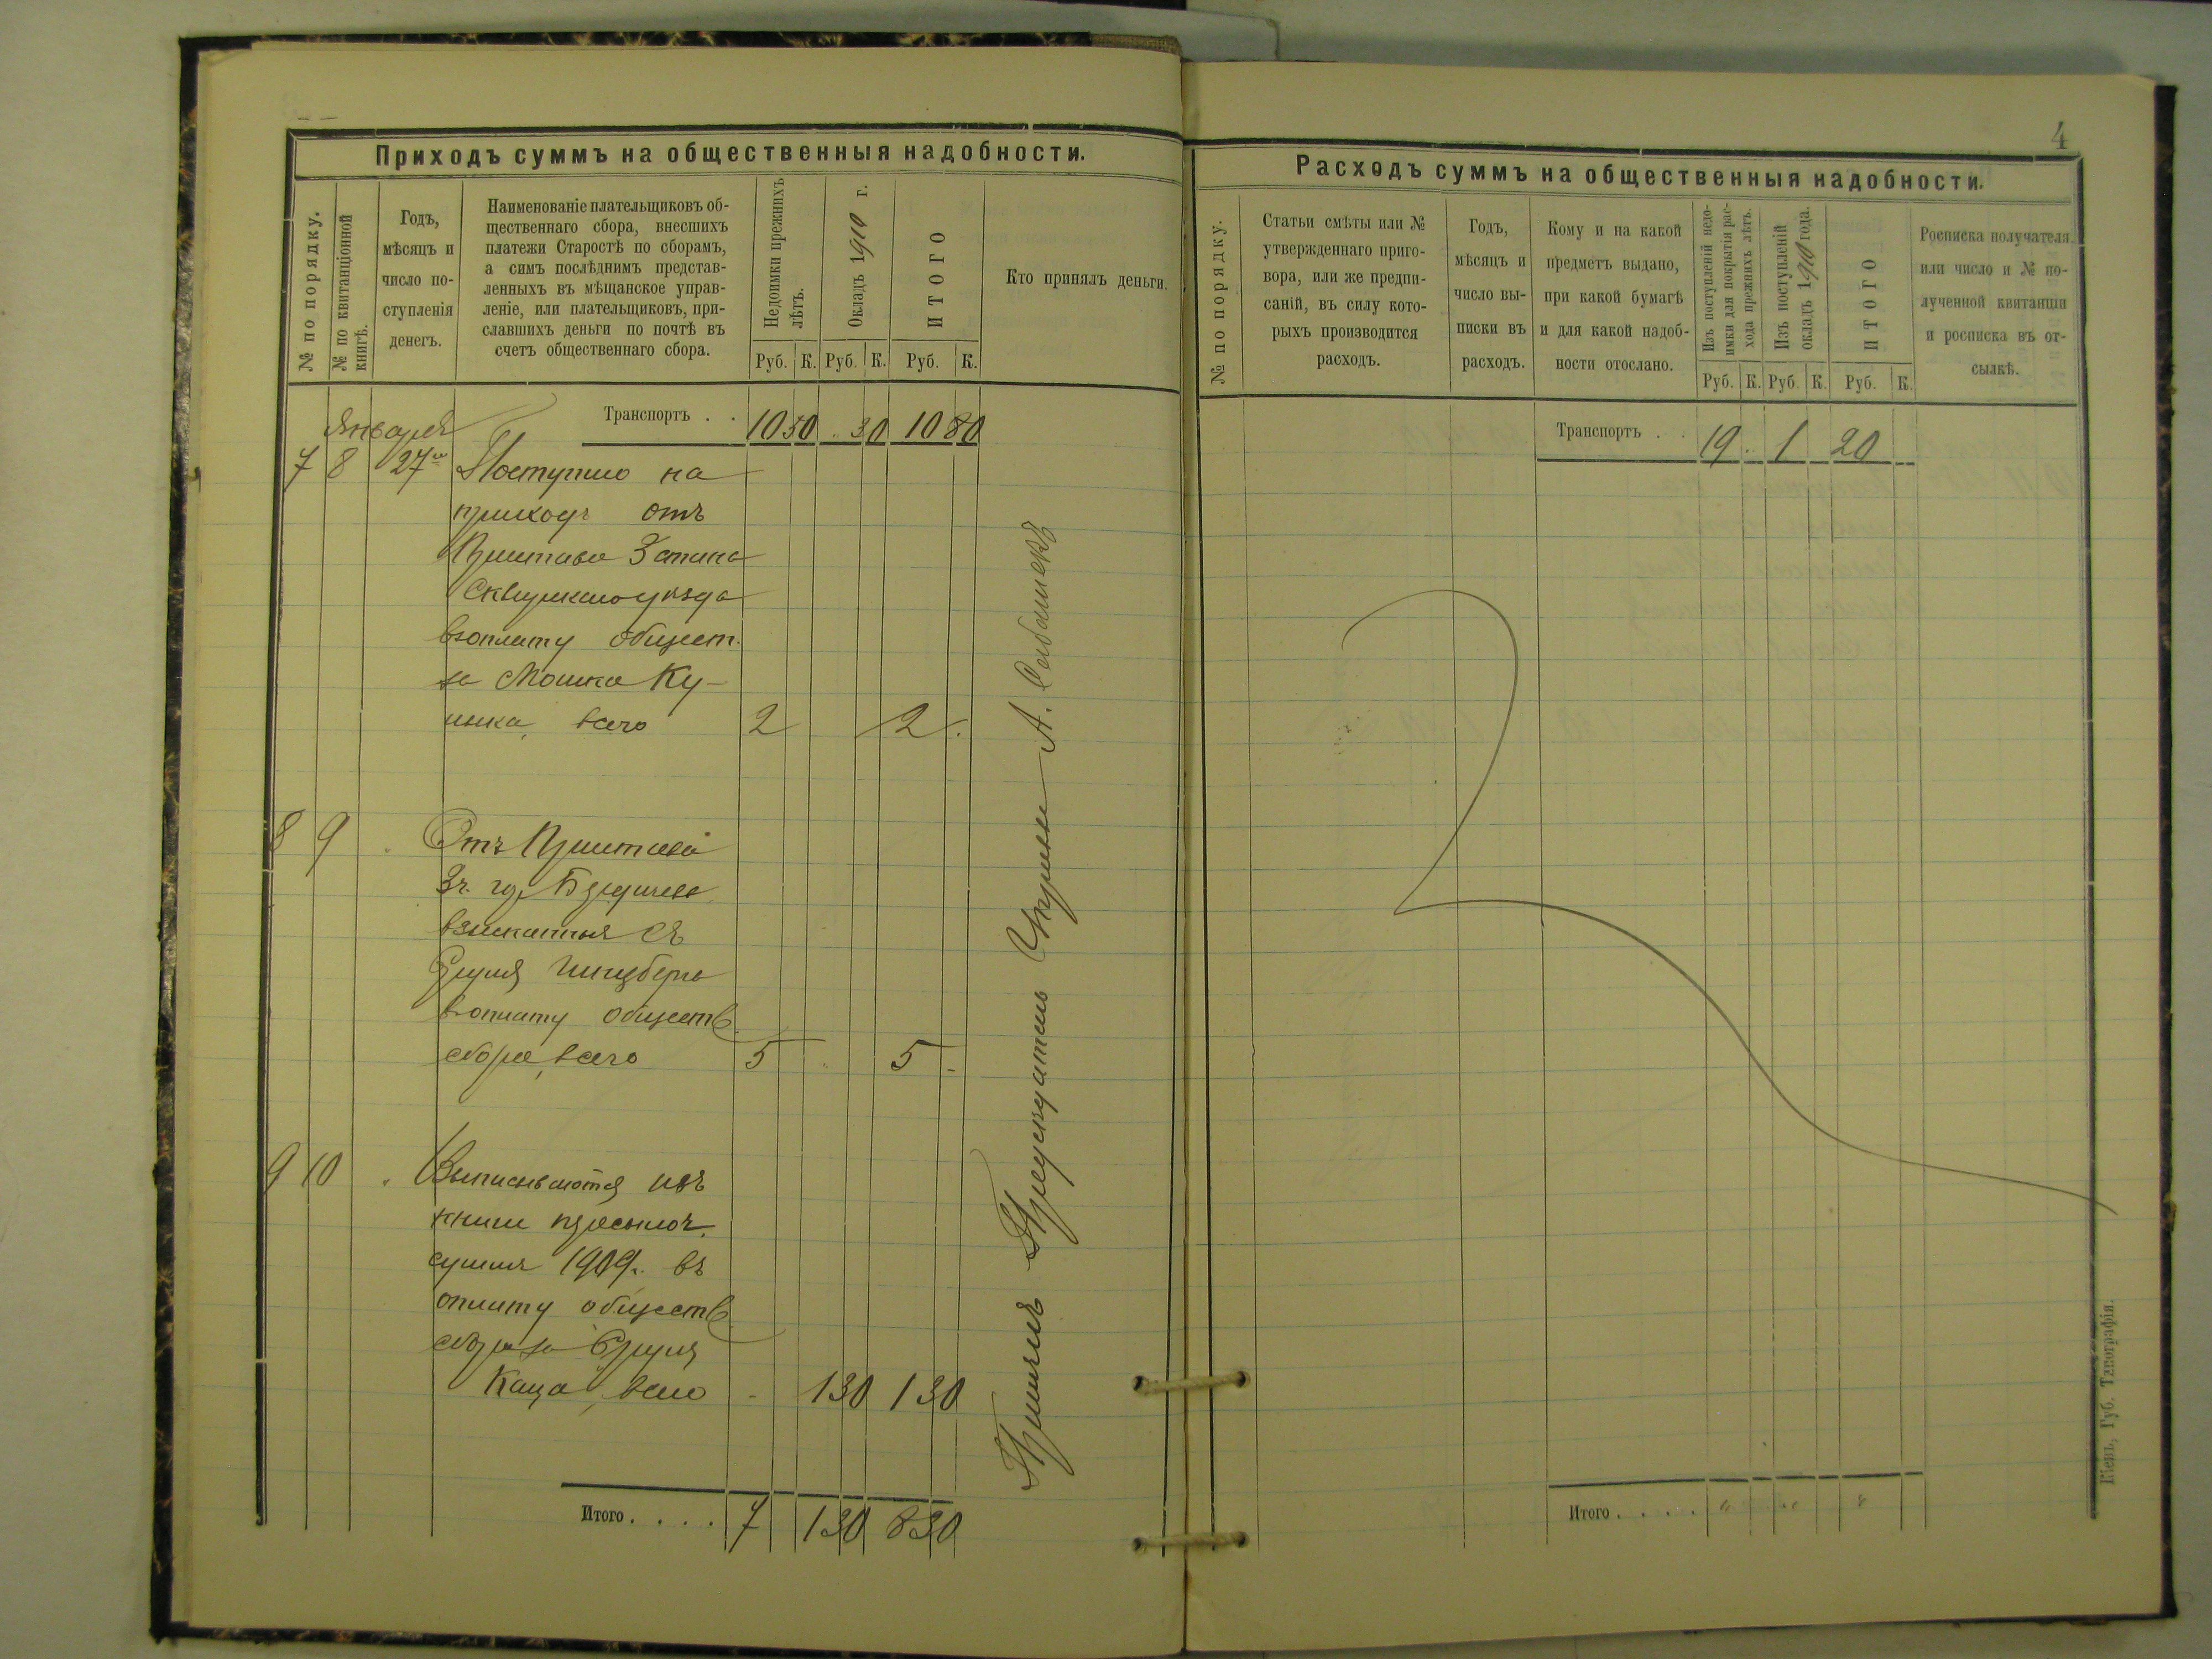 Приходъ суммъ на общественныя надобности.
№ по порядку.
№ по квитанціонной книгѣ.
Годъ,
мѣсяцъ и
число по-
ступленія
денегъ.
Наименованіе плательщиковъ об-
щественнаго сбора, внесшихъ
платежи Старостѣ по сборамъ,
а симъ послѣднимъ представ-
ленныхъ въ мѣщанское управ-
леніе, или плательщиковъ, при-
славшихъ деньги по почтѣ въ
счетъ общественнаго сбора.
Недоимки прежнихъ
лѣтъ.
Окладъ 1910 г.
ИТОГО
Кто принялъ деньги.
Руб. К. Руб. К. Руб. К.
Транспортъ . . 10 50 . 30 10 80
Января
7 8 27го Поступило на
приходъ отъ
Пристава 3 стана
Сквирскаго уѣзда
въ оплату общест.
за Мошка Ку-
всего 2 2 .
8 9 . Отъ Пристава
3 ч. гор. Бердичева
взысканныя съ
Сруля Гинзберга
въ оплату обществ.
сбора, всего 5 . 5 -
9 10 . Выписываются изъ
книги пересылоч.
суммъ 1909г. въ
оплату обществ.
сбора за Сруля
Каца, всего - 1 30 1 30
Итого . . . . 7 1 30 8 30
Принялъ Предсѣдатель А.
4
Расходъ суммъ на общественныя надобности.
№ по порядку.
Статьи смѣты или №
утвержденнаго приго-
вора, или же предпи-
саній, въ силу кото-
рыхъ производится
расходъ.
Годъ,
мѣсяцъ и
число вы-
писки въ
расходъ.
Кому и на какой
предметъ выдано,
при какой бумагѣ
и для какой надоб-
ности отослано.
Изъ поступленій недо-
имки для покрытія рас-
хода прежнихъ лѣтъ.
Изъ поступленій
окладъ 1910 года.
ИТОГО
Росписка получателя
или число и № по-
лученной квитанціи
и росписка въ от-
сылкѣ.
Руб. К. Руб. К. Руб. К.
Транспортъ . . 19 . 1 20
Итого . . . . " " "
Кіевъ, Губ. Типографія.